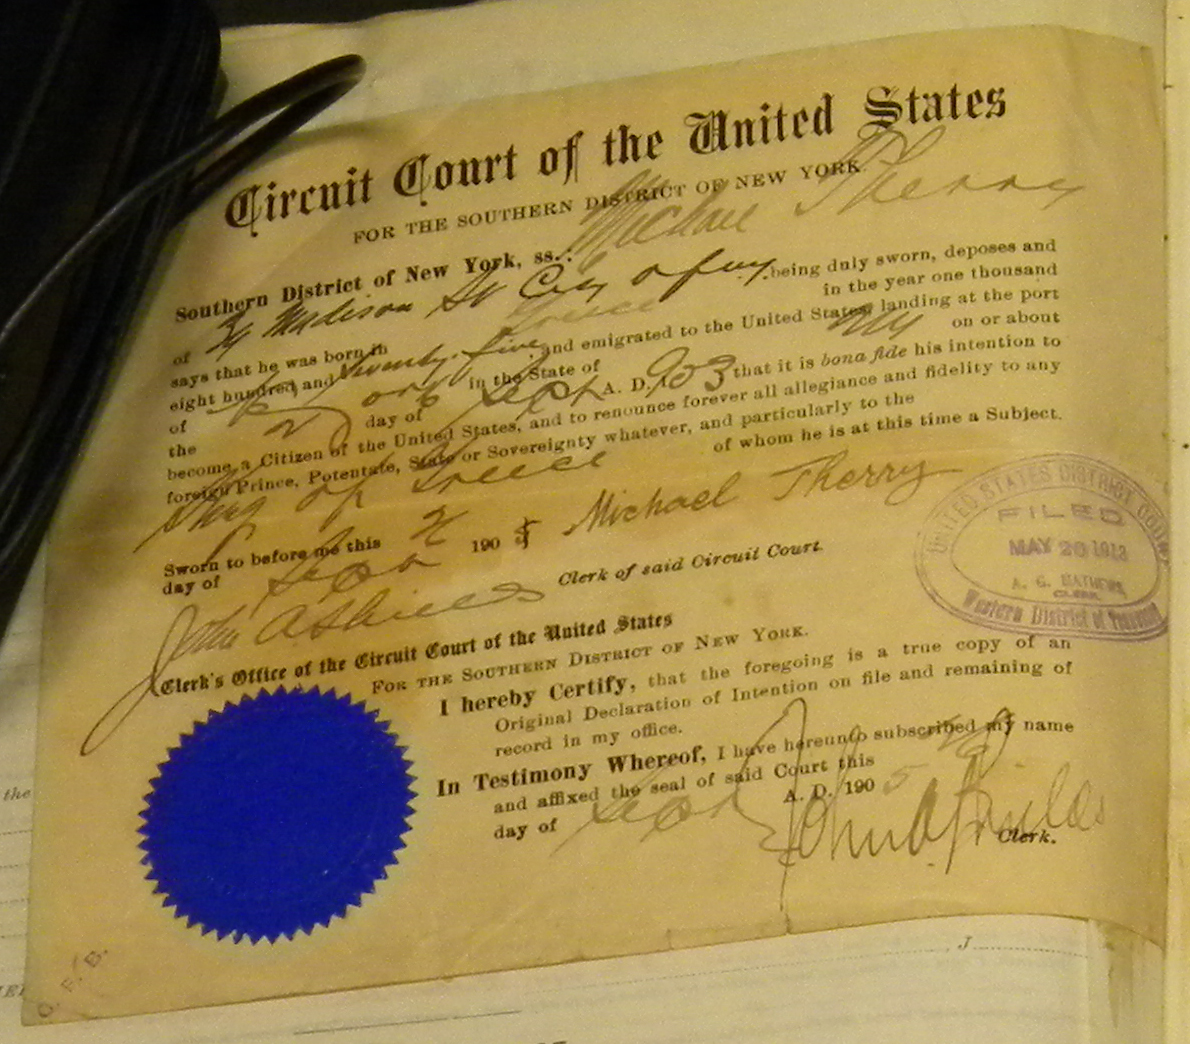 Circuit Court of the United States
FOR THE SOUTHERN DISTRICT OF NEW YORK.
Southern District of New York, ss.: Michael Sherry
of Madison St City of ny. being duly sworn, deposes and
says that he was born in Greece in the year one thousand
eight hundred and Seventy-five and emigrated to the United States, landing at the port
of in the State of Ny on or about
the day of Sept A. D. 1903 that it is bona fide his intention to
become a Citizen of the United States, and to renounce forever all allegiance and fidelity to any
foreign Prince, Potentate, State or Sovereignty whatever, and particularly to the
King of Greece of whom he is at this time a Subject.
Sworn to before me this 190 Michael Sherry
day of Sept
John A Shields Clerk of said Circuit Court.
UNITED STATES DISTRICT COURT
FILED
MAY 20 1913
A. G. MATHEWS,
CLERK.
Western District of
Clerk's Office of the Circuit Court of the United States
FOR THE SOUTHERN DISTRICT OF NEW YORK.
I hereby Certify, that the foregoing is a true copy of an
Original Declaration of Intention on file and remaining of
record in my office.
In Testimony Whereof, I have hereunto subscribed my name
and affixed the seal of said Court this
day of Sept A. D. 1905
John A Shields
Clerk.
the
J